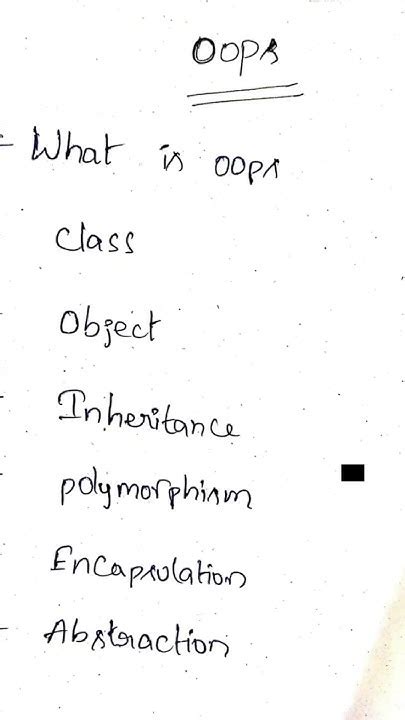 OOPs
- What is OOPs
Class
Object
Inheritance
polymorphism
Encapsulation
Abstraction